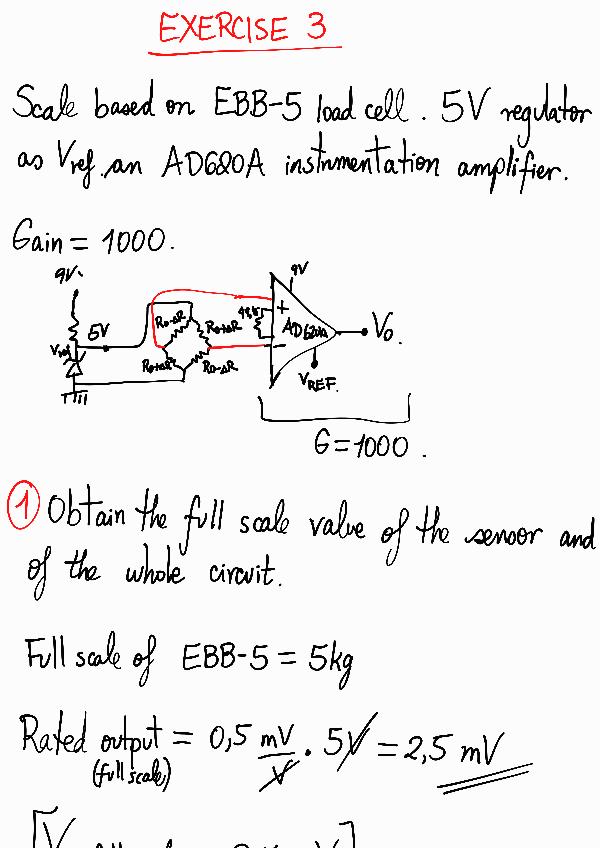 EXERCISE 3
Scale based on EBB-5 load cell. 5V regulator
as Vref. an AD620A instrumentation amplifier.
Gain = 1000.
9V
9V
5V
Ro-ΔR
Ro+ΔR
+
AD620A
Vo.
Vref
Ro+ΔR
Ro-ΔR
-
VREF.
G=1000.
1 Obtain the full scale value of the sensor and
of the whole circuit.
Full scale of EBB-5 = 5kg
Rated output = 0,5 mV/V . 5V = 2,5 mV
(full scale)